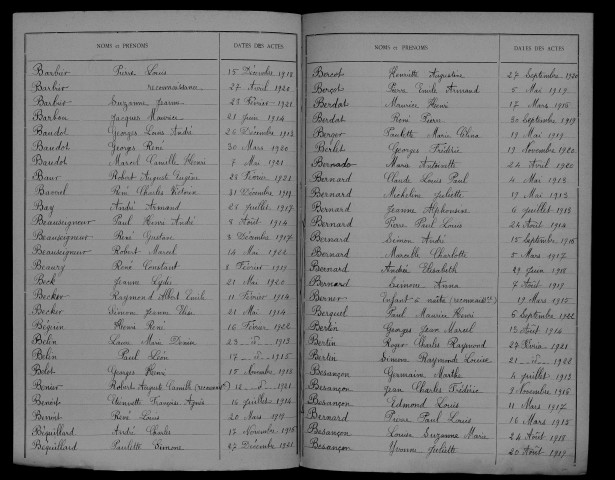 NOMS et PRÉNOMS DATES DES ACTES
Barbier Pierre Louis 15 Décembre 1912
Barbier reconnaissance 27 Avril 1920
Barbier Suzanne Jeanne 23 Février 1921
Barbou Jacques Maurice 21 Juin 1914
Baudot Georges Louis André 26 Décembre 1913
Baudot Georges René 30 Mars 1920
Baudot Marcel Camille Henri 7 Mai 1921
Baur Robert Auguste Eugène 28 Février 1921
René Charles 31 Décembre 1917
Bay André Armand 28 Juillet 1917
Beauseigneur Paul Henri André 8 Août 1914
Beauseigneur René Gustave 3 Décembre 1917
Beauseigneur Robert Marcel 14 Mai 1922
Beaury René Constant 8 Février 1919
Beck Jeanne 21 Mai 1920
Becker Raymond Albert Emile 11 Février 1914
Becker Simone Jeanne 21 Mai 1914
Béguin Henri René 16 Février 1922
Belin Laure Marie 23 d° 1913
Belin Paul Léon 17 d° 1915
Belot Georges Henri 15 Novembre 1918
Benier Robert Auguste Camille 12 d° 1921
Benoit Etiennette Françoise Agnès 16 Juillet 1914
Benoit René Louis 20 Mars 1919
Béquillard André Charles 17 Novembre 1916
Béquillard Paulette Simone 27 Décembre 1921
NOMS et PRÉNOMS DATES DES ACTES
Bercot Henriette Augustine 27 Septembre 1920
Berçot Pierre Emile Armand 5 Mai 1919
Berdat Maurice Henri 17 Mars 1916
Berdat René Pierre 30 Septembre 1919
Berger Paulette Marie 19 Mai 1919
Berlet Georges Frédéric 19 Novembre 1920
Bernado Marie Antoinette 24 Avril 1920
Bernard Claude Louis Paul 4 Mai 1913
Bernard Micheline Juliette 17 Mai 1913
Bernard Jeanne Alphonsine 6 Juillet 1913
Bernard Pierre Paul Louis 24 Août 1914
Bernard Simon André 15 Septembre 1916
Bernard Marcelle Charlotte 5 Mars 1917
Bernard Andrée Elisabeth 29 Juin 1918
Bernard Simone Anna 7 Août 1919
Berner Enfant à naître (reconnaiss.) 19 Mars 1915
Bergeul Paul Maurice Henri 6 Septembre 1922
Bertin Georges Jean Marcel 13 Août 1914
Bertin Roger Charles Raymond 27 Février 1921
Bertin Simone Raymonde Louise 21 d° 1922
Besançon Germaine Marthe 4 Juillet 1913
Besançon Jean Charles Frédéric 2 Novembre 1916
Besançon Edmond Louis 11 Mars 1917
Bernard Pierre Paul Louis 16 Mars 1915
Besançon Louise Suzanne Marie 24 Août 1918
Besançon Yvonne Juliette 20 Août 1919